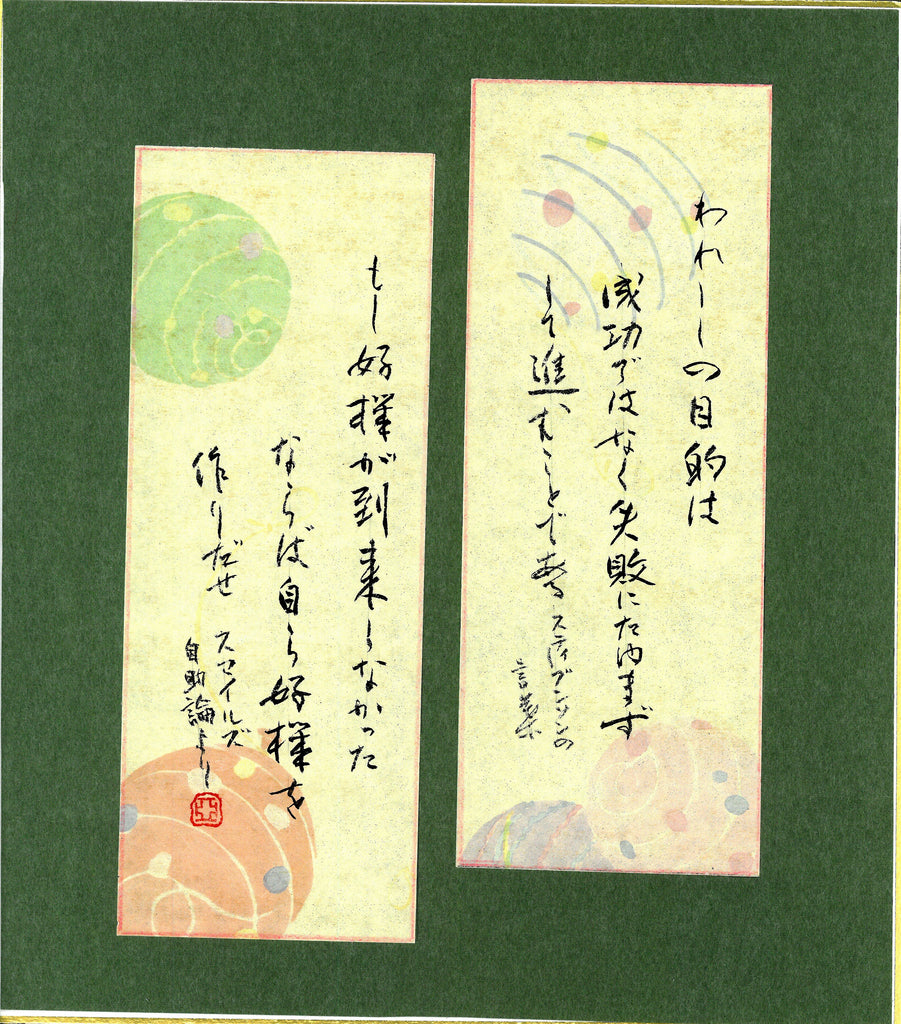 われらの目的は
成功ではなく失敗にたゆまず
して進むことである スティブンソンの
言葉
もし好機が到来しなかった
ならば自ら好機を
作りだせ スマイルズ
自助論より